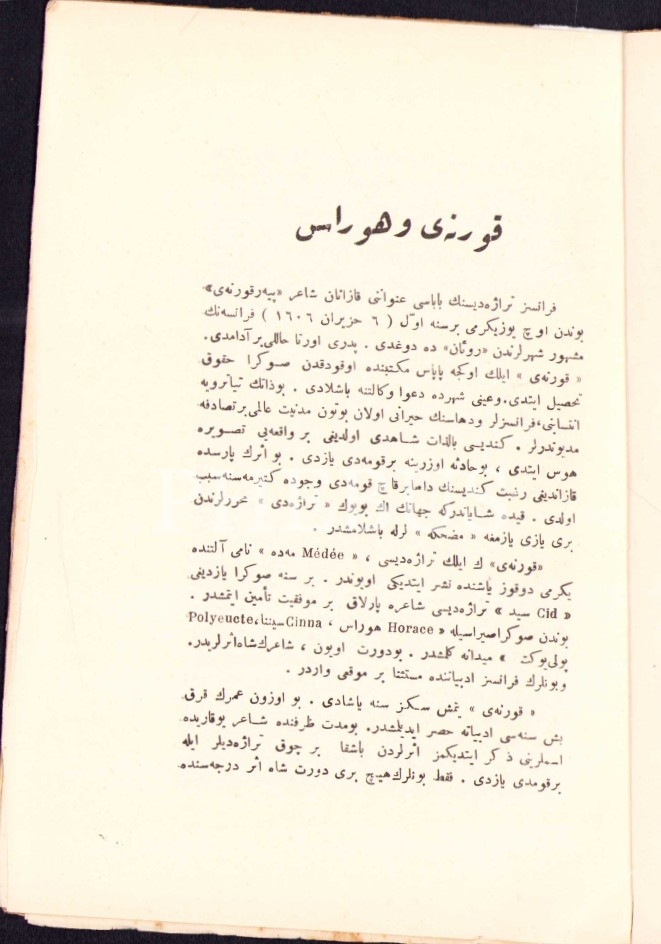 قورنه‌ی و هوراس
فرانسز تراژه‌دیسنك باباسی عنواننی قازانان شاعر «پیه‌ر قورنه‌ی»
بوندن اوچ یوز یکرمی بر سنه اوّل ( ٦ حزیران ١٦٠٦ ) فرانسه‌نك
مشهور شهرلرندن «روئان» ده دوغدی . پدری اورتا حاللی بر آدامدی.
« قورنه‌ی » ایلك اوکجه پاپاس مکتبنده اوقودقدن صوکرا حقوق
تحصیل ایتدی. وعینی شهرده دعوا وکالتنه باشلادی . بوذاتك تیاترویه
انتسابنی، فرانسزلر ودهاسنك حیرانی اولان بوتون مدنیت عالمی بر تصادفه
مدیوندرلر . کندیسی بالذات شاهدی اولدیغی بر واقعه‌یی تصویره
هوس ایتدی ، بوحادثه اوزرینه برقومه‌دی یازدی . بو اثرك پارسده
قازاندیغی رغبت کندیسنك داها برقاچ قومه‌دی وجوده کتیرمه‌سنه سبب
اولدی . قیده شایاندرکه جهانك اك بویوك « تراژه‌دی » محررلرندن
بری یازی یازمغه « مضحکه » لرله باشلامشدر .
«قورنه‌ی» ك ایلك تراژه‌دیسی ، « Médée مه‌ده » نامی آلتنده
یکرمی دوقوز یاشنده نشر ایتدیکی اویوندر . بر سنه صوکرا یازدیغی
« Cid سید » تراژه‌دیسی شاعره پارلاق بر موفقیت تأمین ایتمشدر .
بوندن صوکرا صیراسیله « Horace هوراس ، Cinna سیننا ، Polyeucte
پولی‌یوکت » میدانه کلمشدر . بودورت اویون ، شاعرك شاه اثرلریدر.
وبونلرك فرانسز ادبیاتنده مستثنا بر موقعی واردر .
« قورنه‌ی » یتمش سکز سنه یاشادی . بو اوزون عمرك قرق
بش سنه‌سی ادبیاته حصر ایدیلمشدر. بومدت ظرفنده شاعر یوقاریده
اسملرینی ذکر ایتدیکمز اثرلردن باشقا بر چوق تراژه‌دیلر ایله
برقومدی یازدی . فقط بونلرك هیچ بری دورت شاه اثر درجه‌سنده